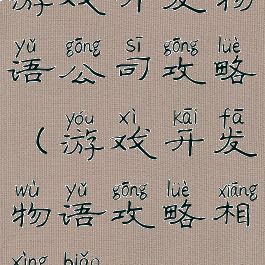 游戏开发物
yǔ gōng sī gōng lüè
语公司攻略
yóu xì kāi fā
（游戏开发
wù yǔ gōng lüè xiāng
物语攻略相
xìng biǎo